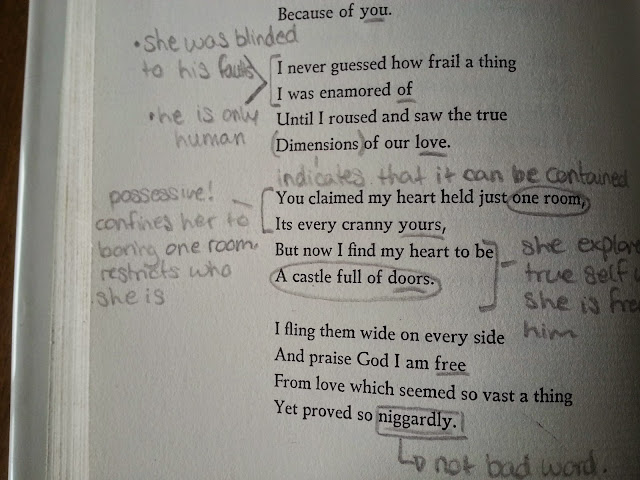 Because of you.
• she was blinded
to his faults
I never guessed how frail a thing
I was enamored of
• he is only
human
Until I roused and saw the true
(Dimensions) of our love.
indicates that it can be contained
possessive!
confines her to
boring one room.
restricts who
she is
You claimed my heart held just one room,
Its every cranny yours,
But now I find my heart to be
A castle full of doors.
she explore
true self
she is fre
him
I fling them wide on every side
And praise God I am free
From love which seemed so vast a thing
Yet proved so niggardly.
not bad word.